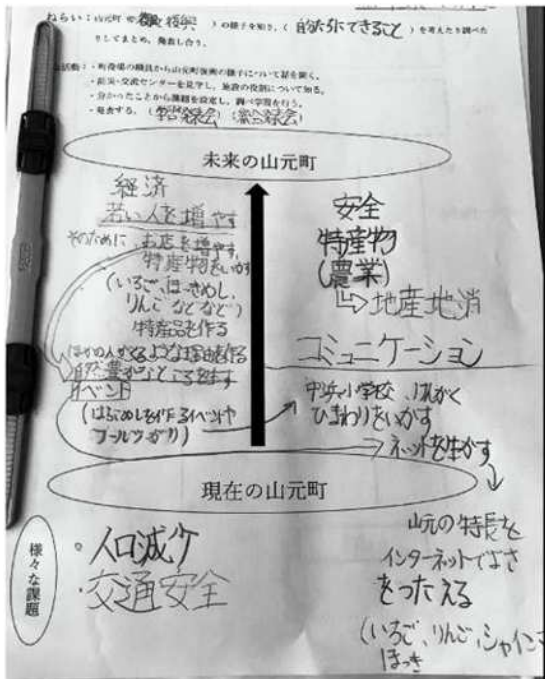 ねらい：山元町の復興）の様子を知り、（自分たちにできること）を考えたり調べた
りしてまとめ、発表し合う。
活動：・町役場の職員から山元町復興の様子について話を聞く。
・防災・交流センターを見学し、施設の役割について知る。
・分かったことから課題を設定し、調べ学習を行う。
・発表する。（学習発表会）
未来の山元町
経済
若い人を増やす
そのために、お店を増やす
特産物をいかす
（いちご、ほっきめし、
りんごなどなど）
特産品を作る
ほかの人がくるような理由を作る
自然豊かなところをます
イベント
安全
特産物
（農業）
地産地消
コミュニケーション
中浜小学校、
ひまわりをいかす
ネットを生かす
現在の山元町
様々な課題
・人口減少
・交通安全
山元の特長を
インターネットでよさ
をつたえる
（いちご、りんご、シャイン
ほっき